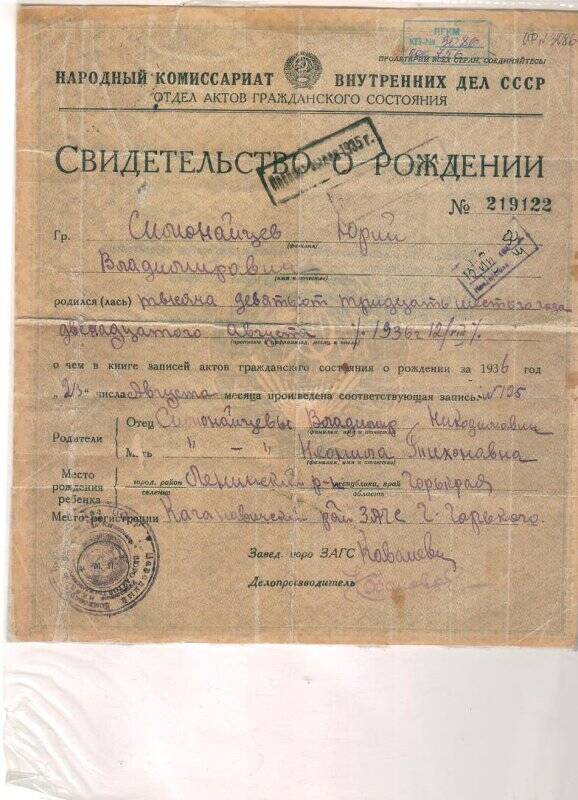 ПГКМ
КП-№ 3086
ПРОЛЕТАРИИ ВСЕХ СТРАН, СОЕДИНЯЙТЕСЬ!
НАРОДНЫЙ КОМИССАРИАТ ВНУТРЕННИХ ДЕЛ СССР
ОТДЕЛ АКТОВ ГРАЖДАНСКОГО СОСТОЯНИЯ
1935 г.
СВИДЕТЕЛЬСТВО О РОЖДЕНИИ
№ 219122
Гр. Симонайцев Юрий
(фамилия)
Владимирович
(имя и отчество)
родился (лась) тысяча девятьсот тридцать шестого года
двенадцатого Августа 1936 г 12/VIII
(прописью и цифрами год, месяц и число)
о чем в книге записей актов гражданского состояния о рождении за 1936 год
„23" числа Августа месяца произведена соответствующая запись №125
Родители
Отец Симонайцевы Владимир Никодимович
(фамилия, имя и отчество)
Мать „ - „ Тихоновна
(фамилия, имя и отчество)
Место рождения ребенка
город, селение район Ленинский р-н республика, край область Горькрая
Место регистрации Кагановический рай ЗАГС г. Горького.
Завед. бюро ЗАГС
Делопроизводитель